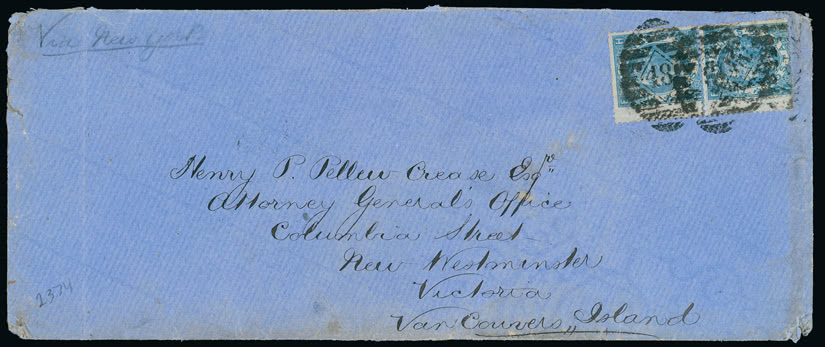 Via New York
48
Henry P. Pellew Crease Esqr
Attorney General's Office
Columbia Street
New Westminster
Victoria
VanCouvers,, Island
2374